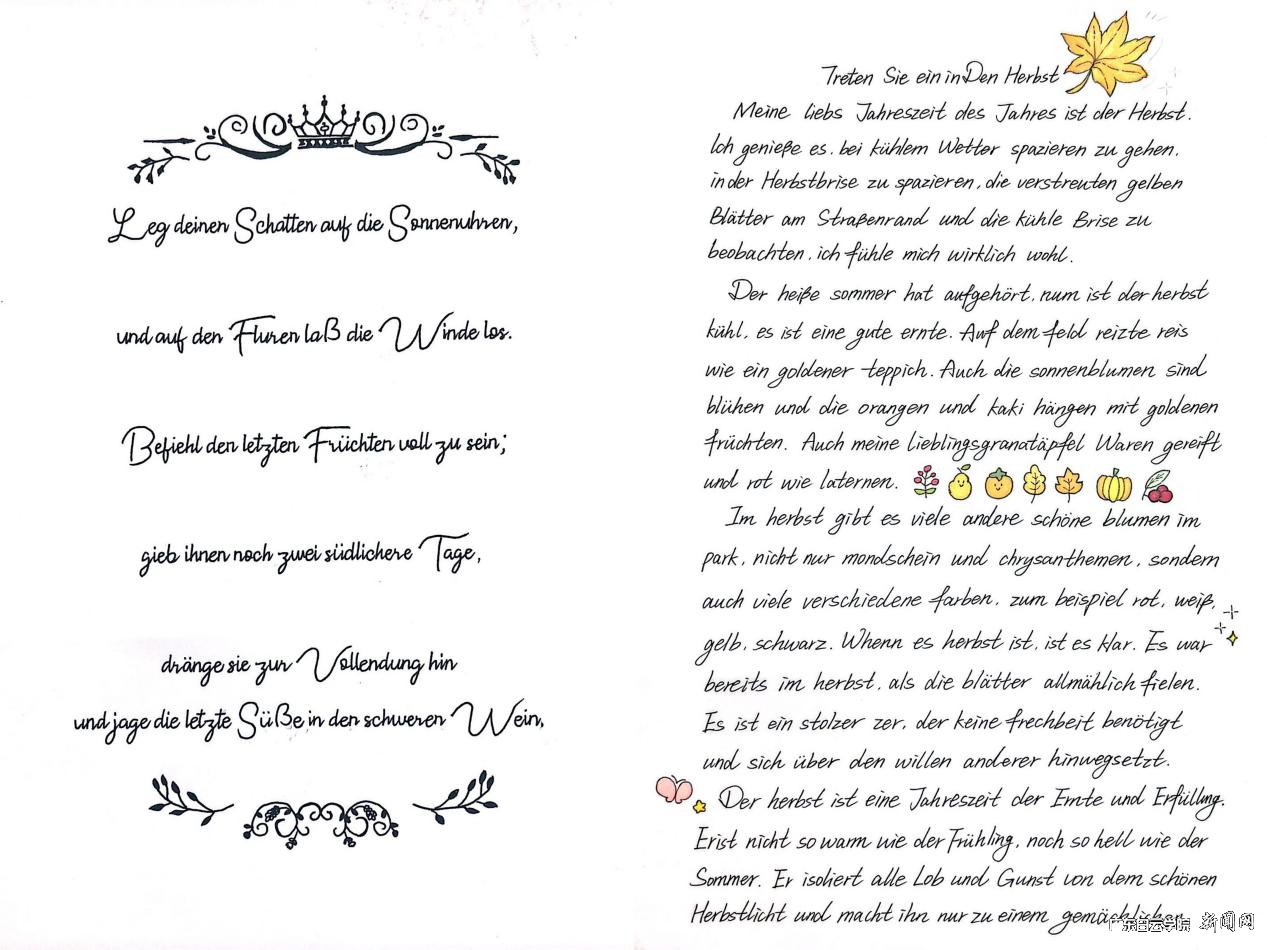 Leg deinen Schatten auf die Sonnenuhren,
und auf den Fluren laß die Winde los.
Befiehl den letzten Früchten voll zu sein;
gieb ihnen noch zwei südlichere Tage,
dränge sie zur Vollendung hin
und jage die letzte Süße in den schweren Wein,
Treten Sie ein in Den Herbst
Meine liebs Jahreszeit des Jahres ist der Herbst.
Ich genieße es, bei kühlem Wetter spazieren zu gehen,
in der Herbstbrise zu spazieren, die verstreuten gelben
Blätter am Straßenrand und die kühle Brise zu
beobachten, ich fühle mich wirklich wohl.
Der heiße sommer hat aufgehört, num ist der herbst
kühl, es ist eine gute ernte. Auf dem feld reizte reis
wie ein goldener teppich. Auch die sonnenblumen sind
blühen und die orangen und kaki hängen mit goldenen
früchten. Auch meine lieblingsgranatäpfel Waren gereift
und rot wie laternen.
Im herbst gibt es viele andere schöne blumen im
park, nicht nur mondschein und chrysanthemen, sondern
auch viele verschiedene farben, zum beispiel rot, weiß,
gelb, schwarz. Whenn es herbst ist, ist es klar. Es war
bereits im herbst, als die blätter allmählich fielen.
Es ist ein stolzer zer, der keine frechbeit benötigt
und sich über den willen anderer hinwegsetzt.
Der herbst ist eine Jahreszeit der Ernte und Erfüllung.
Er ist nicht so warm wie der Frühling, noch so hell wie der
Sommer. Er isoliert alle Lob und Gunst von dem schönen
Herbstlicht und macht ihn nur zu einem gemächlichen
广东白云学院 新闻网